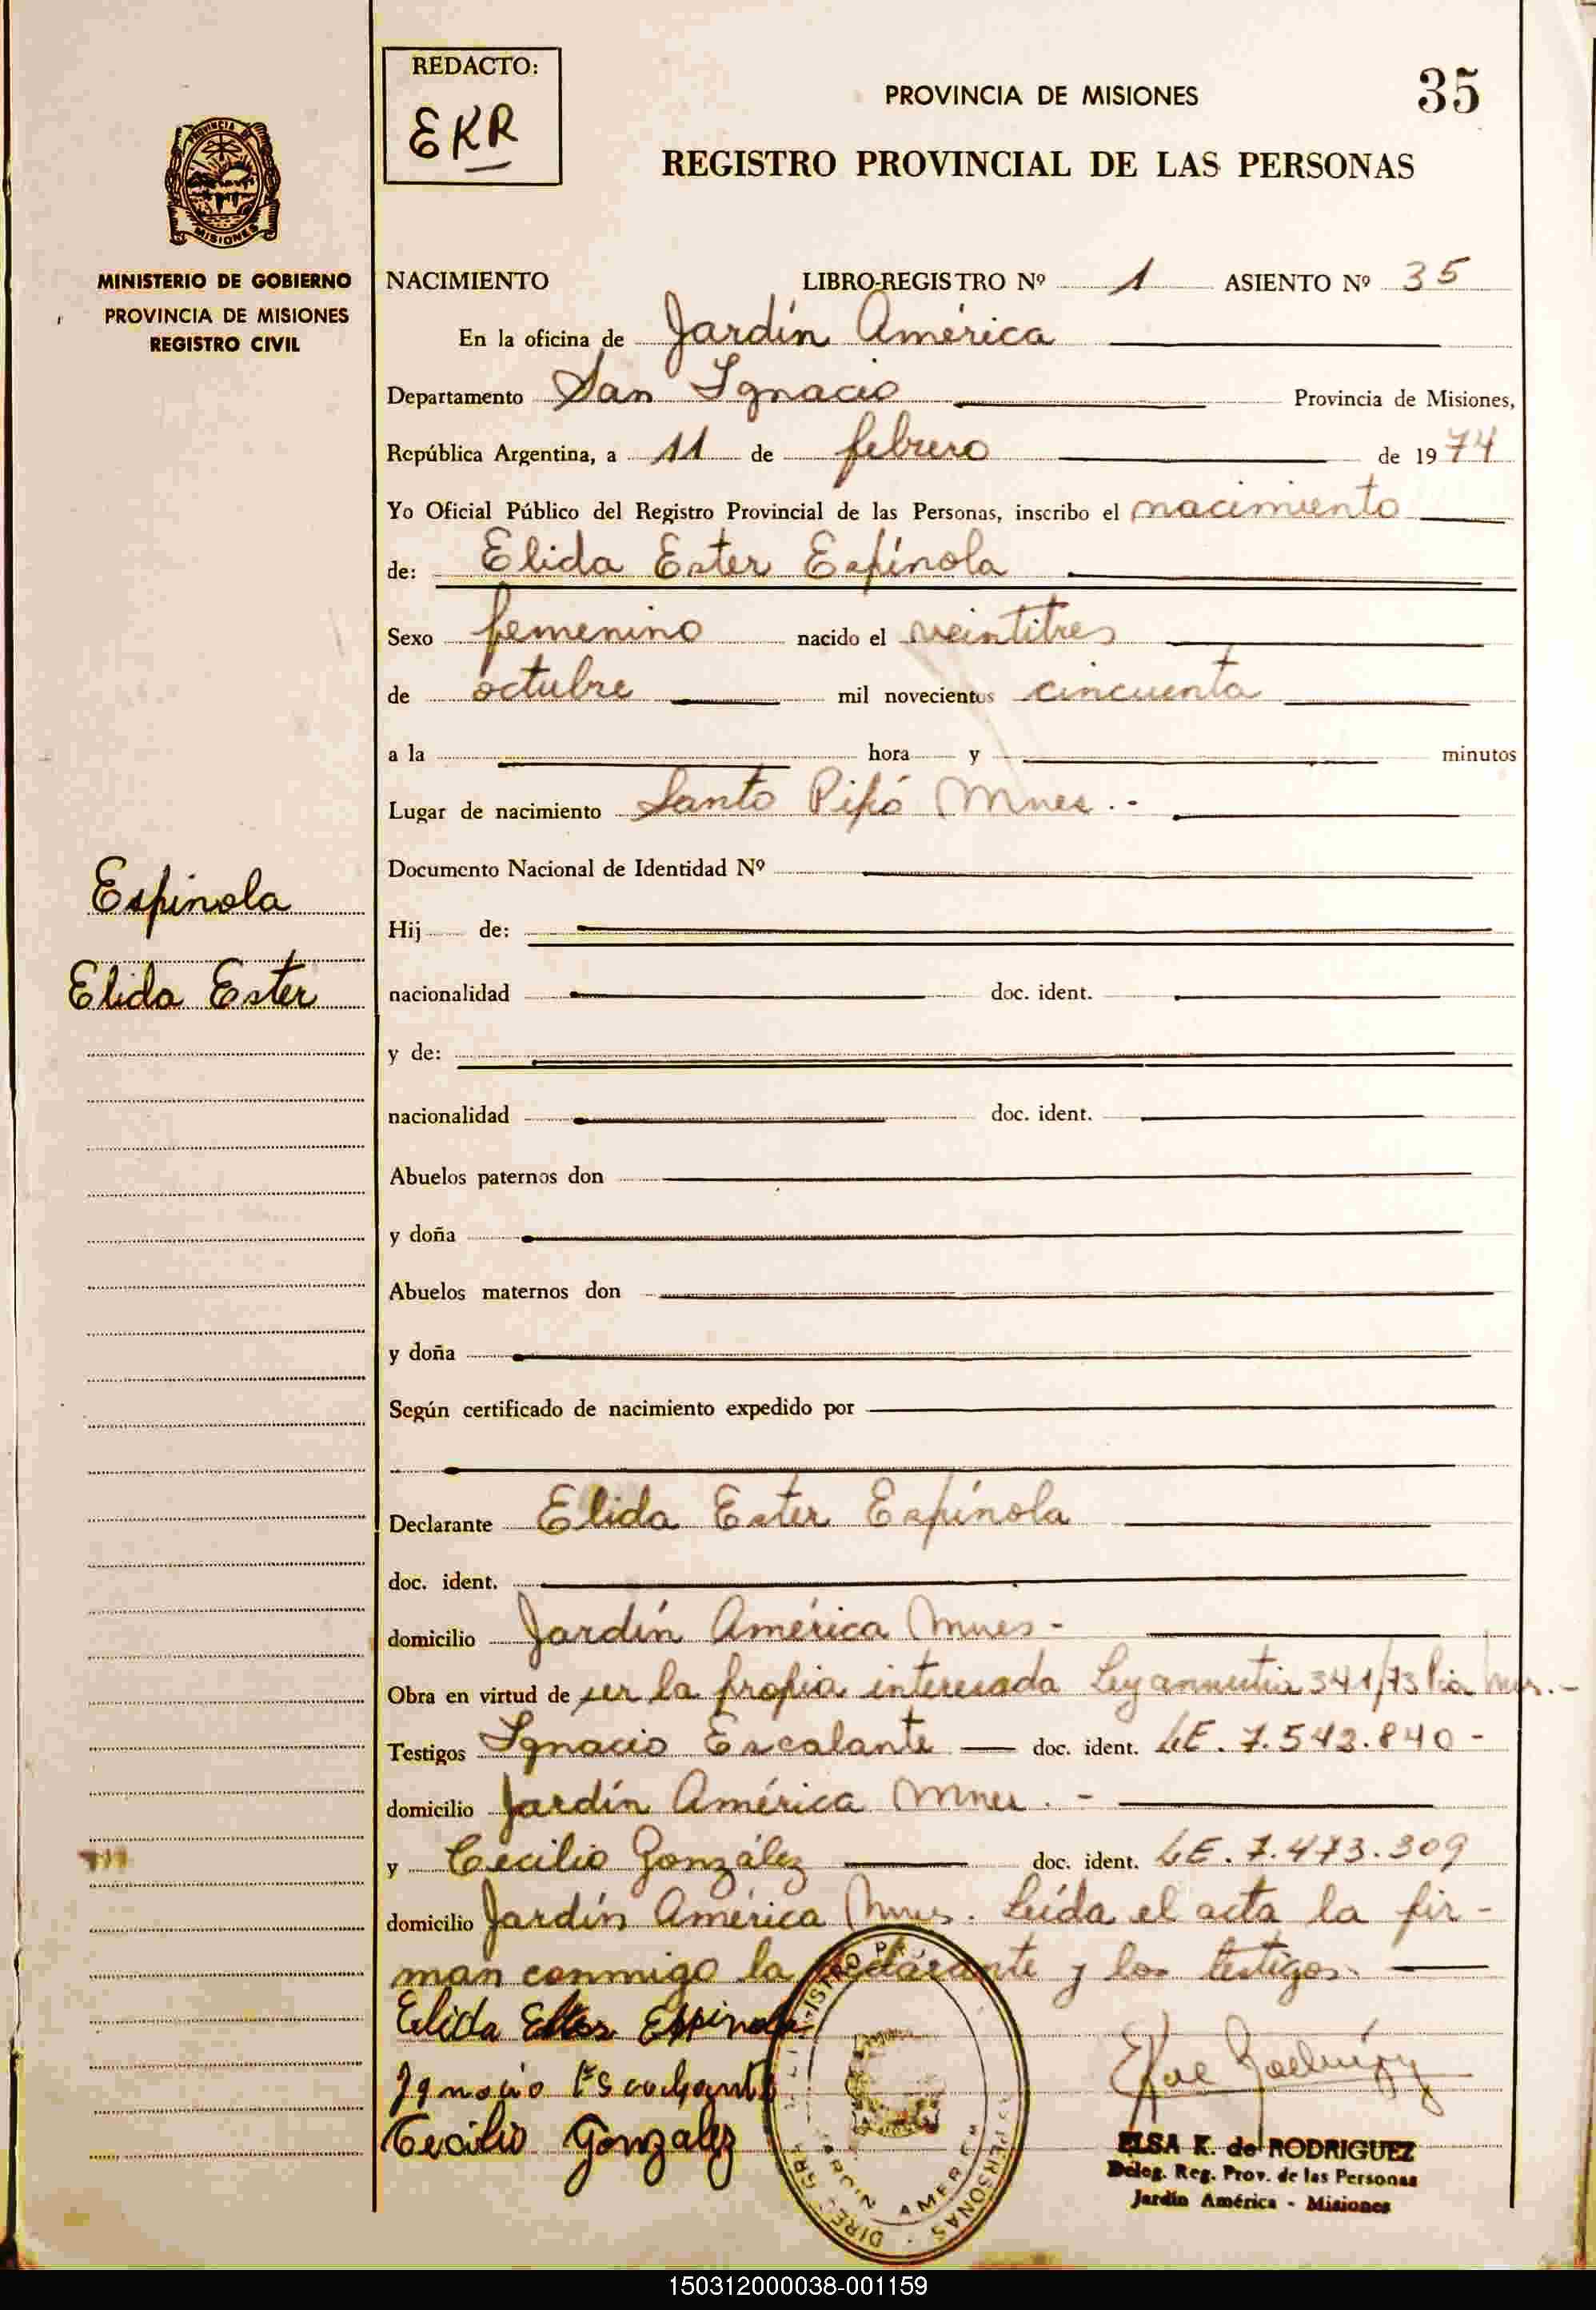 REDACTO:
EKR
PROVINCIA DE MISIONES
35
REGISTRO PROVINCIAL DE LAS PERSONAS
PROVINCIA DE
MISIONES
MINISTERIO DE GOBIERNO
PROVINCIA DE MISIONES
REGISTRO CIVIL
NACIMIENTO LIBRO-REGISTRO Nº 1 ASIENTO Nº 35
En la oficina de Jardín América
Departamento San Ignacio Provincia de Misiones,
República Argentina, a 11 de febrero de 1974
Yo Oficial Público del Registro Provincial de las Personas, inscribo el nacimiento
de: Elida Ester Espínola
Sexo femenino nacido el veintitres
de octubre mil novecientos cincuenta
a la hora y minutos
Lugar de nacimiento Santo Pipó Mnes.-
Documento Nacional de Identidad Nº
Espinola
Hij de:
Elida Ester
nacionalidad doc. ident.
y de:
nacionalidad doc. ident.
Abuelos paternos don
y doña
Abuelos maternos don
y doña
Según certificado de nacimiento expedido por
Declarante Elida Ester Espínola
doc. ident.
domicilio Jardín América Mnes-
Obra en virtud de ser la propia interesada Ley amnistia 341/73 Pcia Mnes.-
Testigos Ignacio Escalante doc. ident. LE. 7.542.840-
domicilio Jardín América Mnes.-
y Cecilio González doc. ident. LE. 7.473.309
domicilio Jardín América Mnes. Leída el acta la fir-
man conmigo la declarante y los testigos.
Elida Ester Espinola
Ignacio Escalante
Cecilio Gonzalez
JARDIN AMERICA
ELSA K. de RODRIGUEZ
Deleg. Reg. Prov. de las Personas
Jardín América - Misiones
150312000038-001159